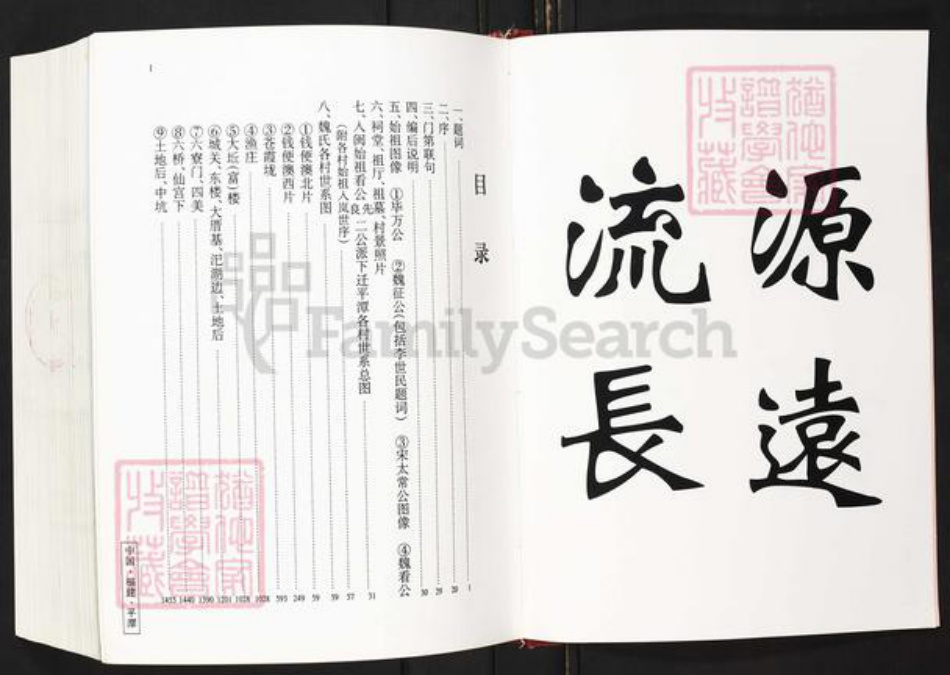 源遠
流長
目录
一、题词 1
二、序 20
三、门第联句 29
四、编后说明 30
五、始祖图像 ①毕万公 ②魏征公(包括李世民题词) ③宋太常公图像 ④魏看公
六、祠堂、祖厅、祖墓、村景照片 31
七、入闽始祖看公良先二公派下迁平潭各村世系总图
(附各村始祖入岚世序) 57
八、魏氏各村世系图 59
①钱便澳北片 59
②钱便澳西片 249
③苍霞垅 593
④渔庄 1028
⑤大坵(富)楼 1028
⑥城关、东楼、大厝基、汜澳边、土地后 1201
⑦六寮门、四美 1390
⑧六桥、仙宫下 1440
⑨土地后、中坑 1455
1
中国·福建·平潭
FamilySearch
猶他家
譜學會
收藏
猶他家
譜學會
收藏